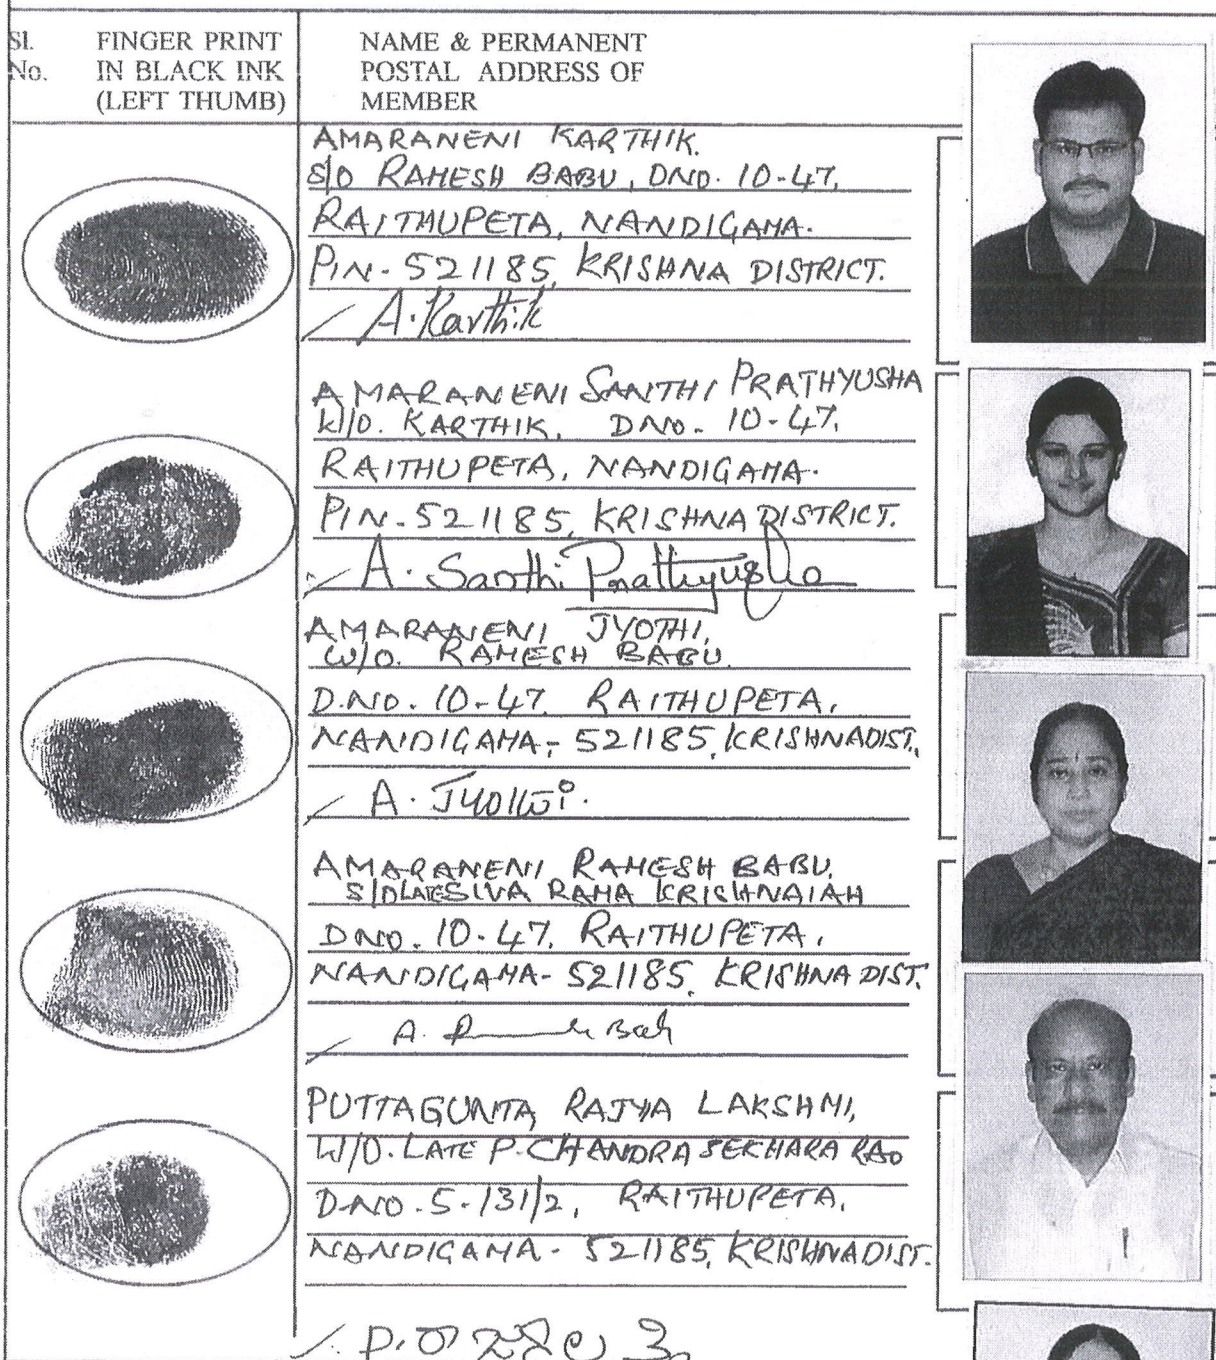 Sl. No.
FINGER PRINT IN BLACK INK (LEFT THUMB)
NAME & PERMANENT POSTAL ADDRESS OF MEMBER
AMARANENI KARTHIK.
S/O RAMESH BABU, DNO. 10-47,
RAITHUPETA, NANDIGAMA.
PIN-521185, KRISHNA DISTRICT.
A. Karthik
AMARANENI SANTHI PRATHYUSHA
W/O. KARTHIK, DNO. 10-47,
RAITHUPETA, NANDIGAMA.
PIN-521185, KRISHNA DISTRICT.
A. Santhi Prathyusha
AMARANENI JYOTHI,
W/O. RAMESH BABU.
D.NO. 10-47, RAITHUPETA,
NANDIGAMA-521185, KRISHNADIST.
A. Jyothi.
AMARANENI RAMESH BABU,
S/O LATE SIVA RAMA KRISHNAIAH
DNO. 10-47, RAITHUPETA,
NANDIGAMA-521185, KRISHNA DIST.
A.
PUTTAGUNTA RAJYA LAKSHMI,
W/O. LATE P. CHANDRA SEKHARA RAO
D-NO. 5-131/2, RAITHUPETA,
NANDIGAMA-521185, KRISHNADIST.